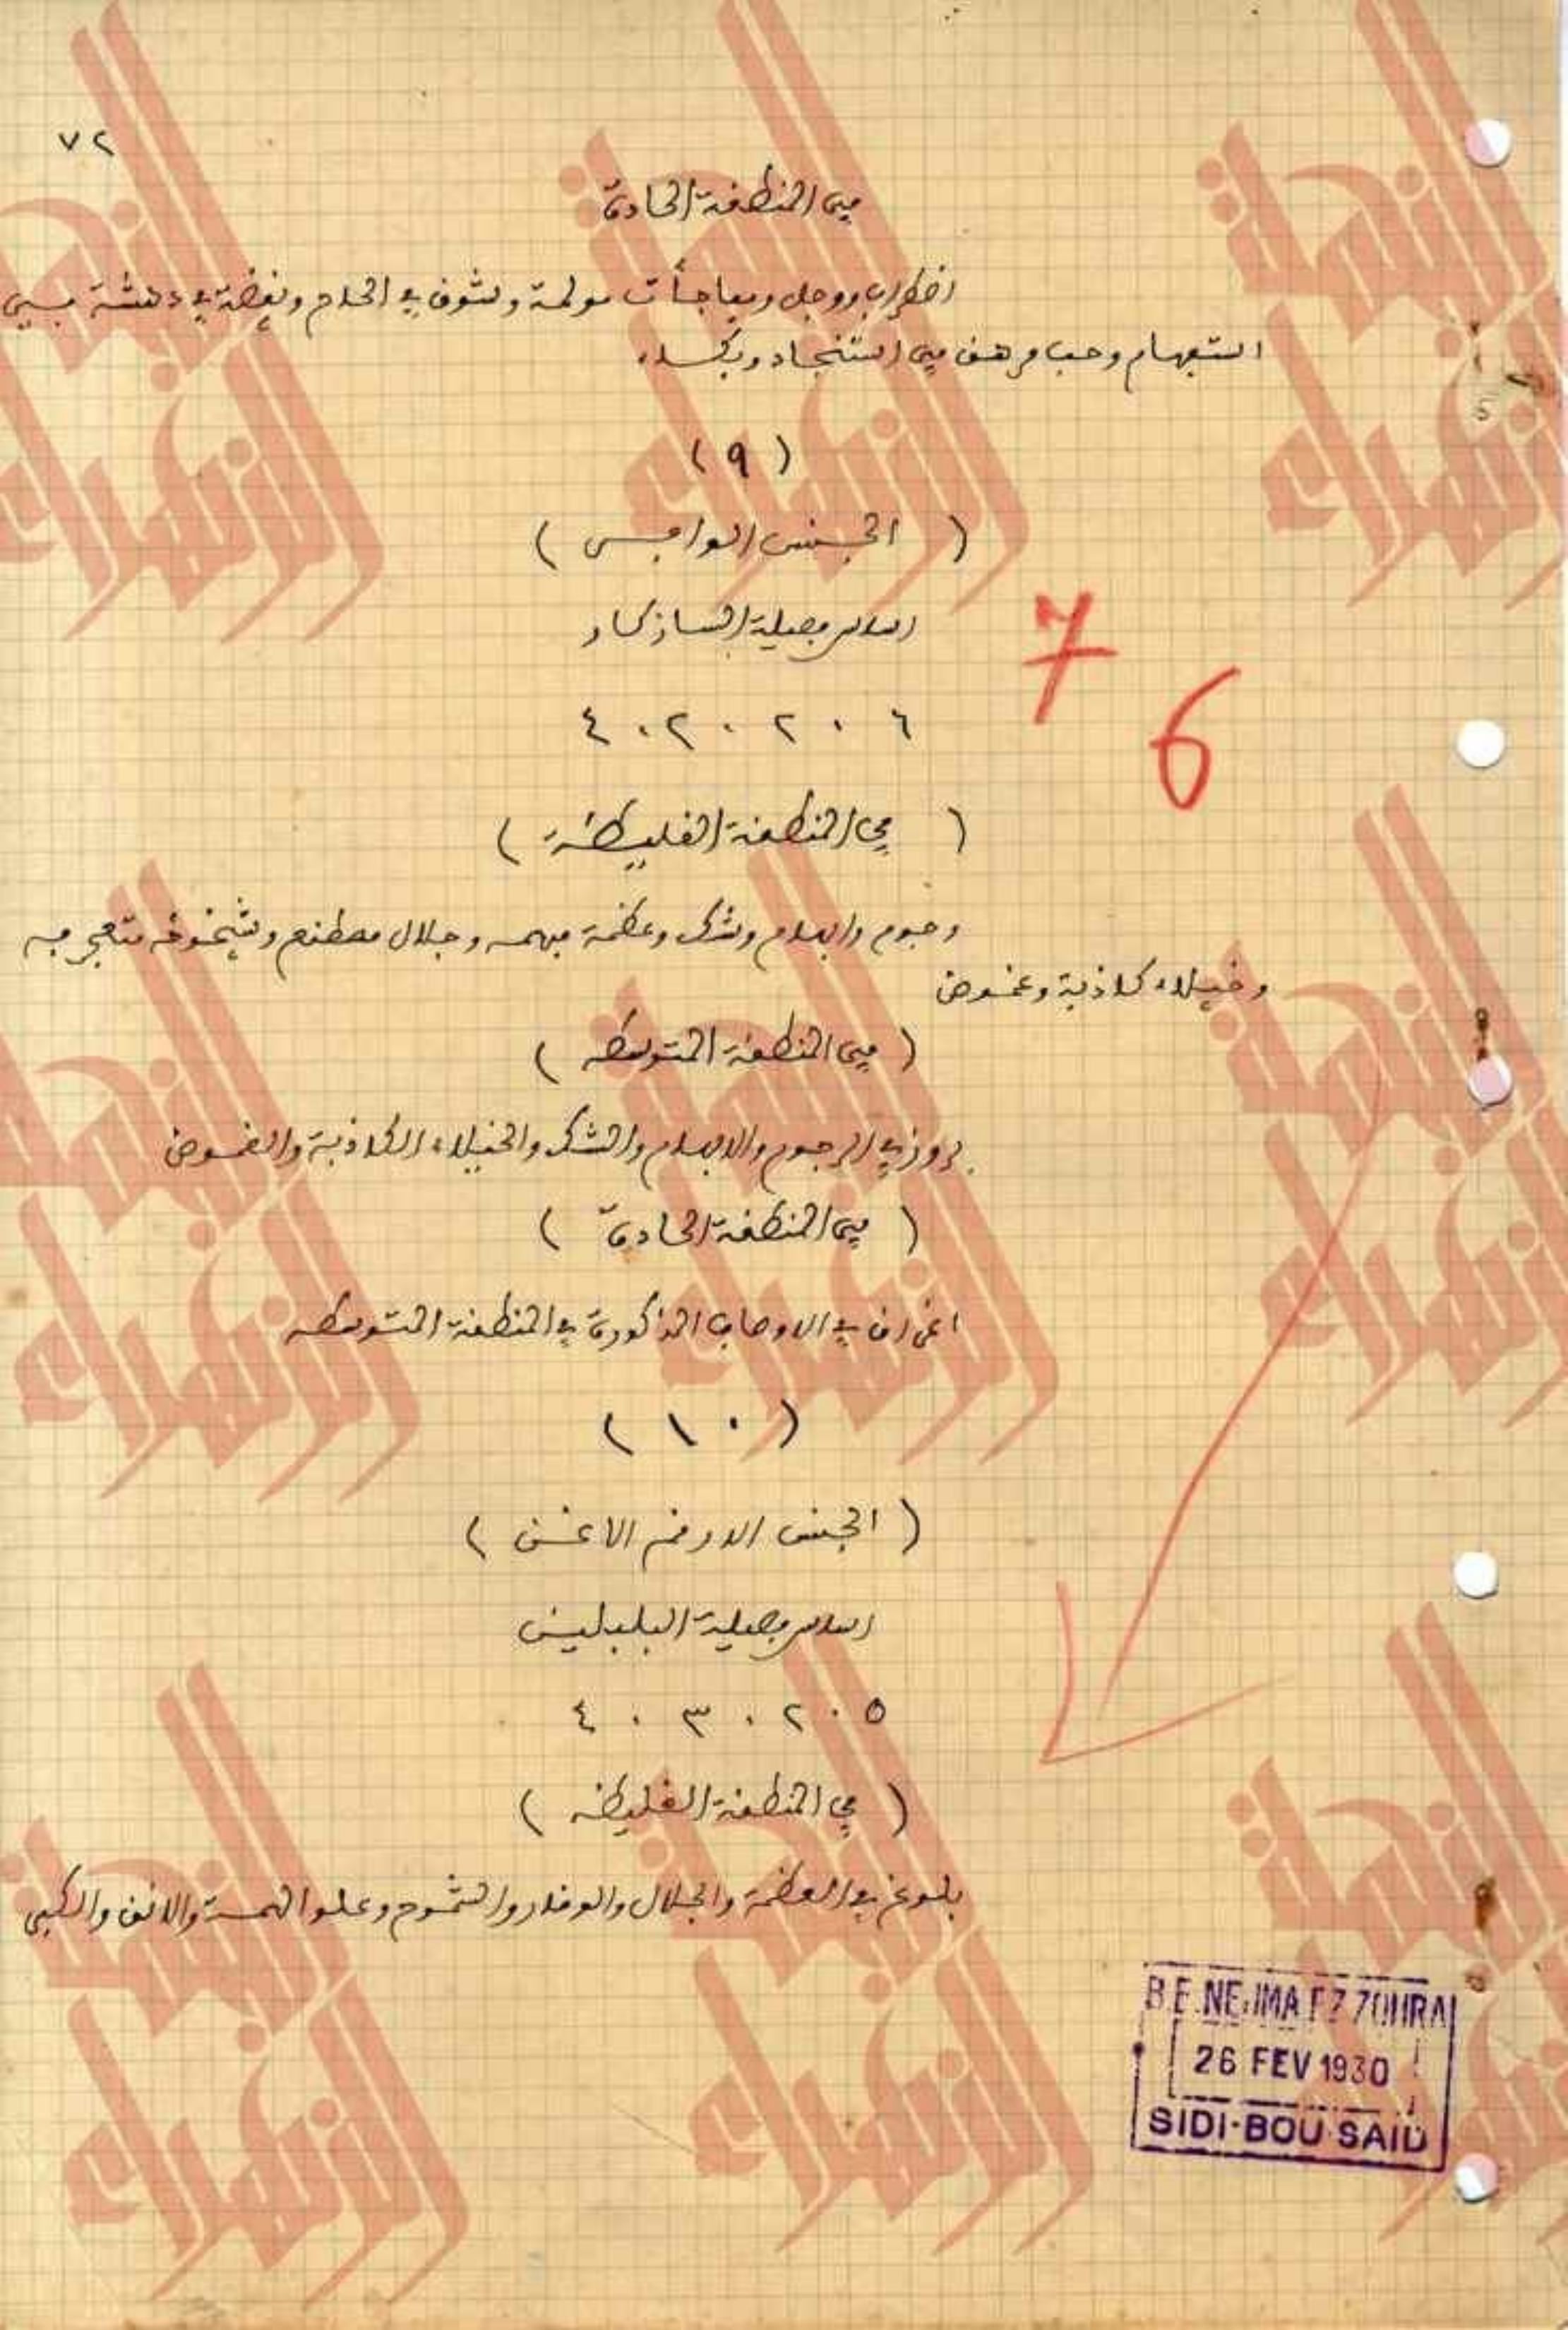 ٧٢
في المنطقة الحادة
اضطراب ووجل ومفاجئات مولمة وتشوق في الحاح ويقضة في دهشة بين
استفهام وحب مرهف في استنجاد وبكاء
(٩)
(الجنس الوامبي)
اساس فصيلة السازكار
٦ . ٢ . ٢ . ٤
(في المنطقة الغليظة)
وجوم وابهام وشك وعظمة مبهمه وجلال مصطنع وشيخوخه متعجرفه
وخيلاء كاذبة وغموض
(في المنطقة المتوسطه)
بروز في الوجوم والابهام والشك والخيلاء الكاذبة والغموض
(في المنطقة الحادة)
اغراق في الاوصاف المذكورة في المنطقة المتوسطه
(١٠)
(الجنس الاوفر الاغن)
اساس فصيلة البلبليش
٥ . ٢ . ٣ . ٤
(في المنطقة الغليظه)
بلوغ في العظمة والجلال والوقار والشموخ وعلو الهمة والانف والكبر
7
6
B.E. NEJMA EZ ZOHRA
26 FEV 1930
SIDI-BOU-SAID
النجمة الزهراء